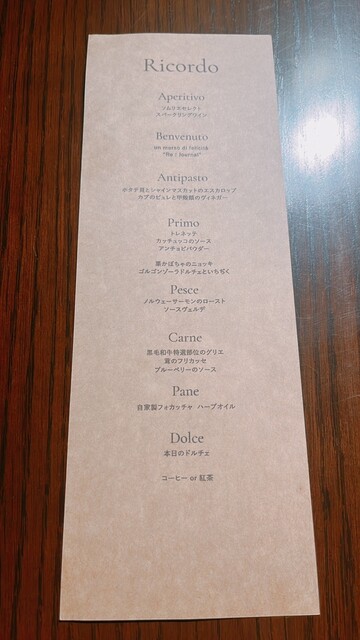 Ricordo
Aperitivo
ソムリエセレクト
スパークリングワイン
Benvenuto
un marzo di felicità
Antipasto
ホタテ貝とシャインマスカットのエスカロップ
カブのピュレと甲殻類のヴィネガー
Primo
トレネッテ
カッチュッコのソース
アンチョビパウダー
栗かぼちゃのニョッキ
ゴルゴンゾーラドルチェといちぢく
Pesce
ノルウェーサーモンのロースト
ソースヴェルデ
Carne
黒毛和牛特選部位のグリエ
茸のフリカッセ
ブルーベリーのソース
Pane
自家製フォカッチャ ハーブオイル
Dolce
本日のドルチェ
コーヒー or 紅茶